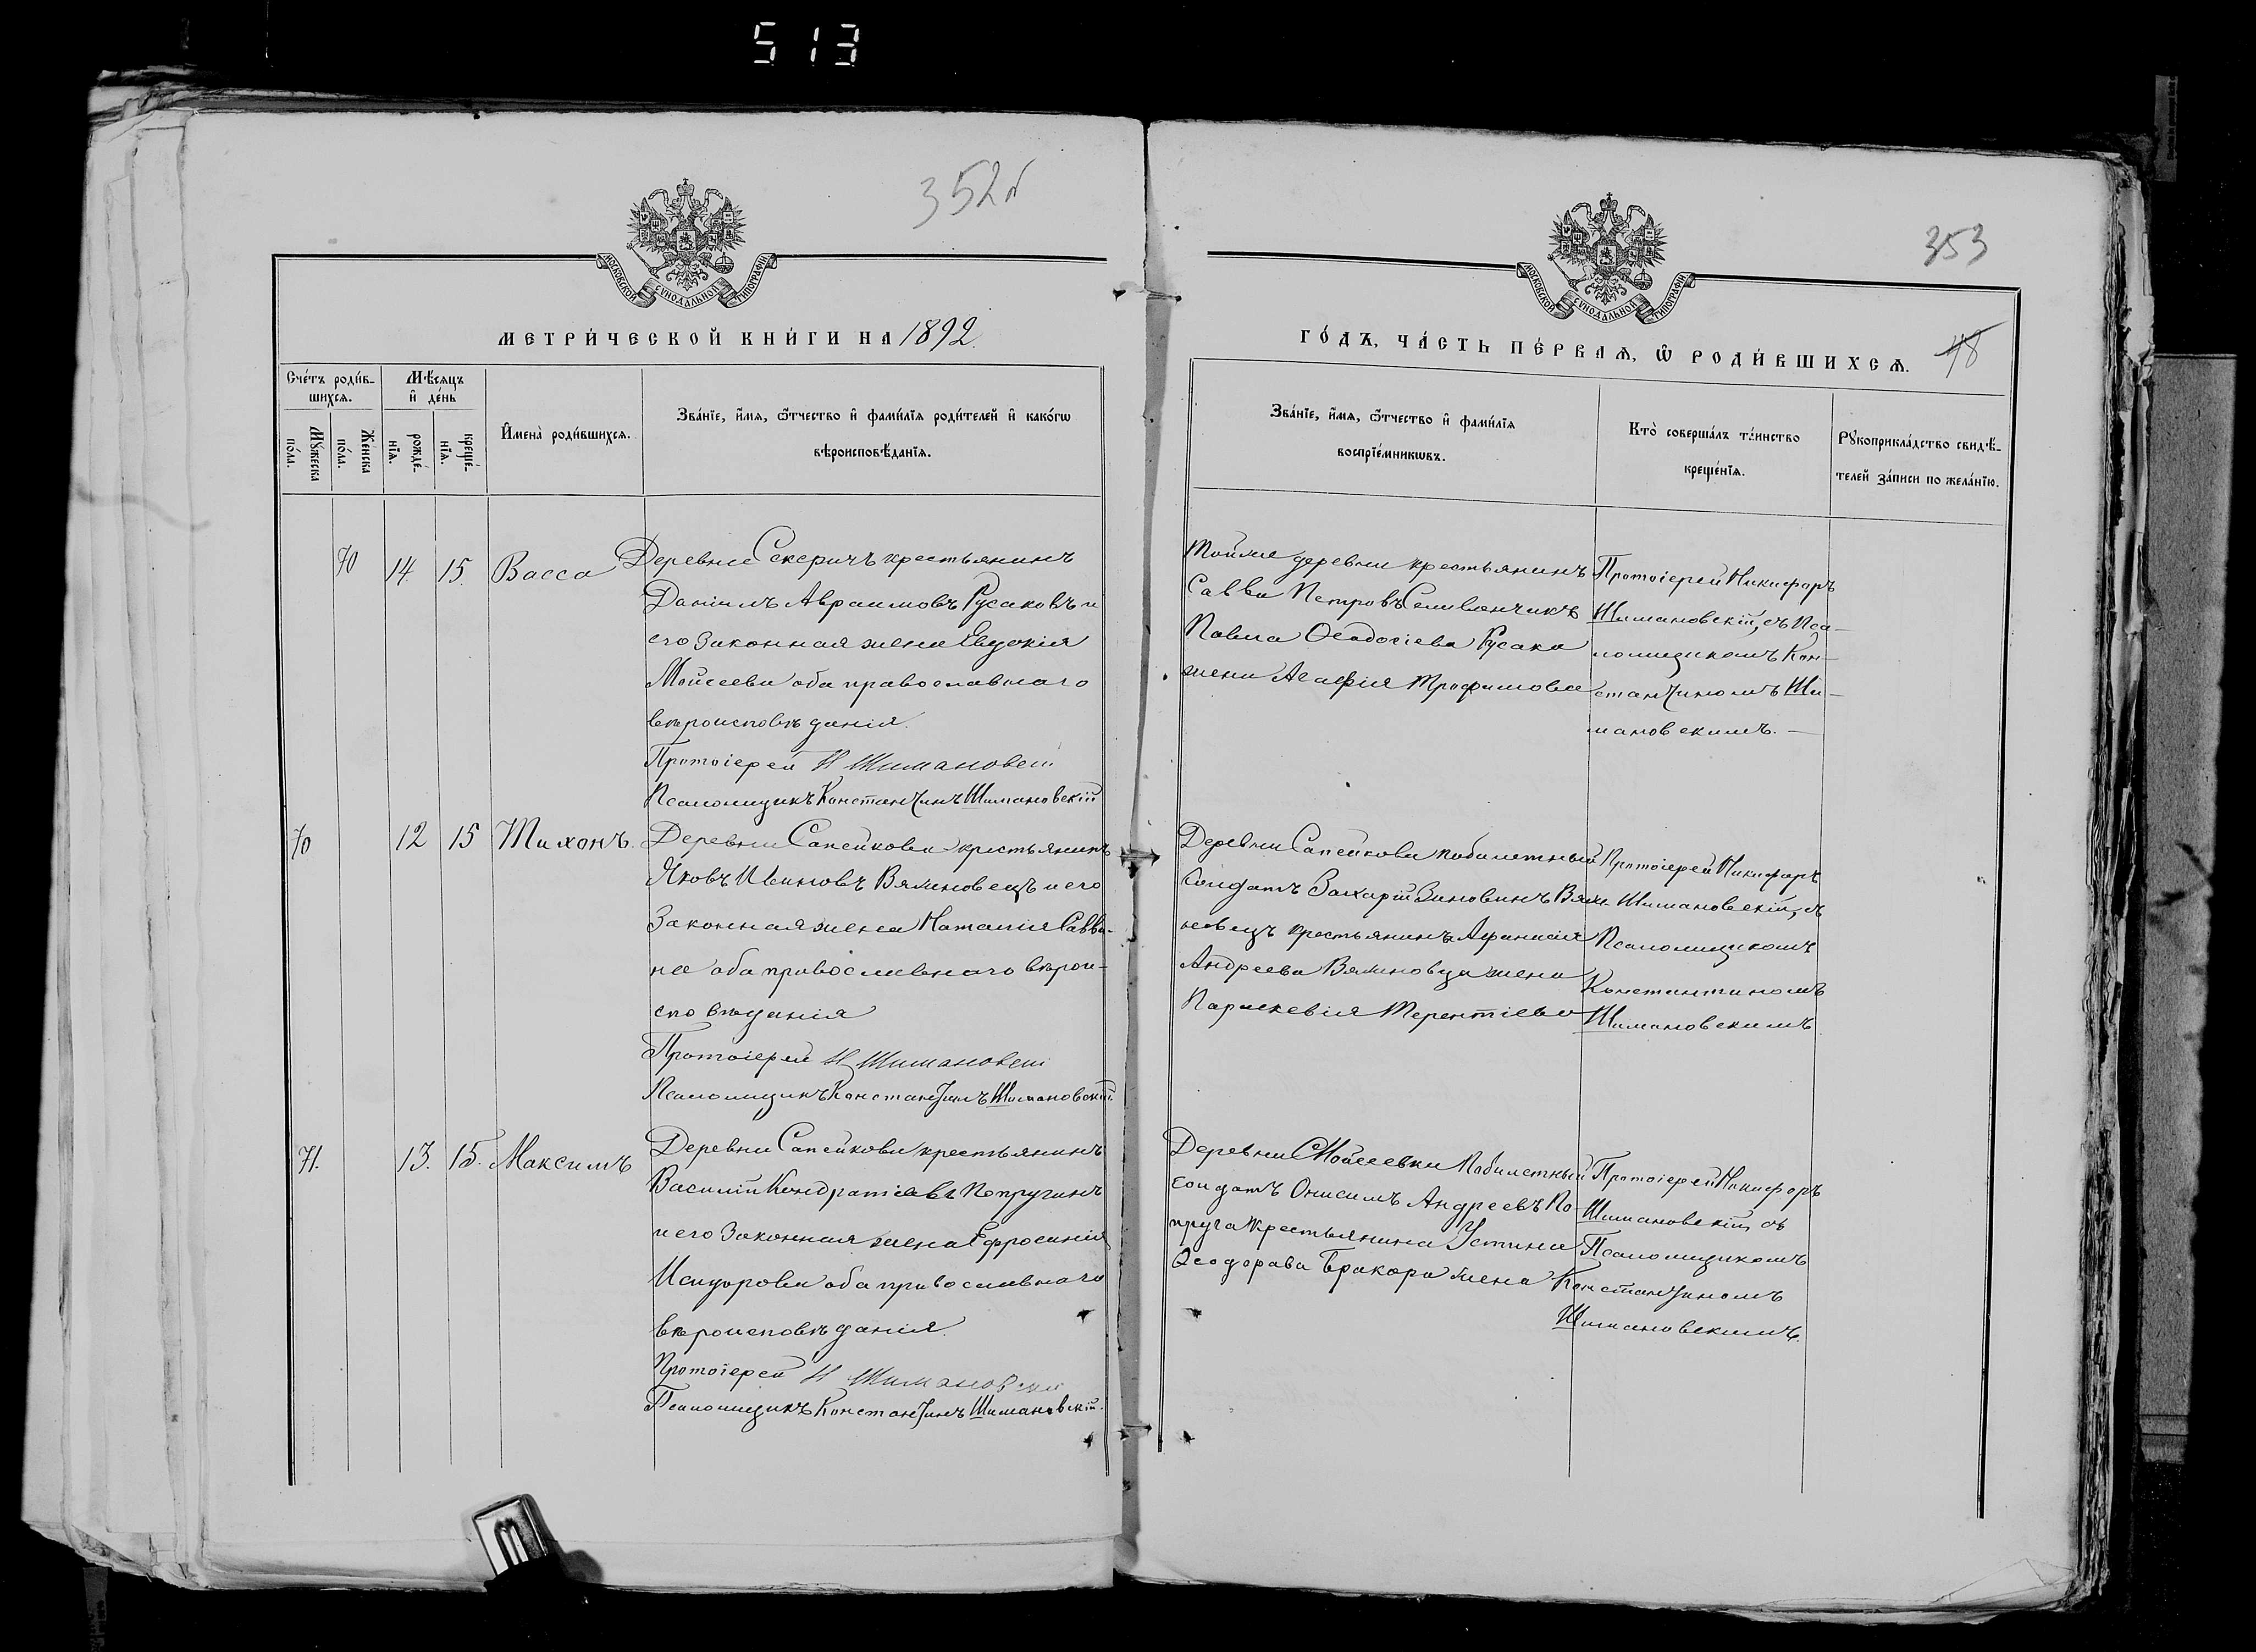 513
352
МОСКОВСКОЙ СѴНОДАЛЬНОЙ ТИПОГРАФІИ
МЕТРИ́ЧЕСКОЙ КНИ́ГИ НА 1892.
Сче́тъ роди́в-
шихсѧ.
Мѣ́сѧцъ
и҆ де́нь
Мꙋ́жеска
по́ла.
Же́нска
по́ла.
рожде́-
нїѧ.
креще́-
нїѧ.
И҆мена̀ роди́вшихсѧ.
Зва́нїе, и҆́мѧ, ѻ҆́тчество и҆ фами́лїѧ роди́телей и҆ како́гѡ
вѣроисповѣ́данїѧ.
70 14. 15. Васса Деревни Секеричъ крестьянинъ
Даніилъ Авраамовъ Русаковъ и
его законная жена Евдокія
Моисеева оба православнаго
вѣроисповѣданія.
Протоіерей Н Шимановскій
Псаломщикъ Константинъ Шимановскій
70 12 15 Тихонъ. Деревни Сапейкова крестьянинъ
Яковъ Ивановъ Вяленовецъ и его
Законная жена Наталія Савви-
на оба православнаго вѣрои-
сповѣданія
Протоіерей Н Шимановскій
Псаломщикъ Константинъ Шимановскій
71. 13. 15. Максимъ Деревни Сапейкова крестьянинъ
Василій Кондратіевъ Попругинъ
и его Законная жена Ефросинія
Исидорова оба православнаго
вѣроисповѣданія.
Протоіерей Н Шимановскій
Псаломщикъ Константинъ Шимановскій.
353
МОСКОВСКОЙ СѴНОДАЛЬНОЙ ТИПОГРАФІИ
ГО́ДЪ, ЧА́СТЬ ПЕ́РВАѦ, Ѡ҆ РОДИ́ВШИХСѦ.
48
Зва́нїе, и҆́мѧ, ѻ҆́тчество и҆ фами́лїѧ
воспрїе́мникѡвъ.
Кто̀ соверша́лъ та́инство
креще́нїѧ.
Рꙋкоприкла́дство свидѣ́-
телей за́писи по жела́нїю.
Той же деревни крестьянинъ
Савва Петровъ Селивончикъ
Павла Ѳеодосіева Русака
жена Агафія Трофимова
Протоіерей Никифоръ
Шимановскій, съ Пса-
ломщикомъ Кон-
стантиномъ Ши-
мановскимъ. —
Деревни Сапейкова побилетный
Солдатъ Захарій Зиновинъ Вяле-
новецъ крестьянина Афанасія
Андреева Вяленовца жена
Параскевія Терентіева
Протоіерей Никифоръ
Шимановскій, съ
Псаломщикомъ
Константиномъ
Шимановскимъ
Деревни Моисеевки Побилетный
солдатъ Онисимъ Андреевъ По-
пруга крестьянина Устина
Ѳеодорава Бракора жена
Протоіерей Никифоръ
Шимановскій, съ
Псаломщикомъ
Константиномъ
Шимановскимъ.